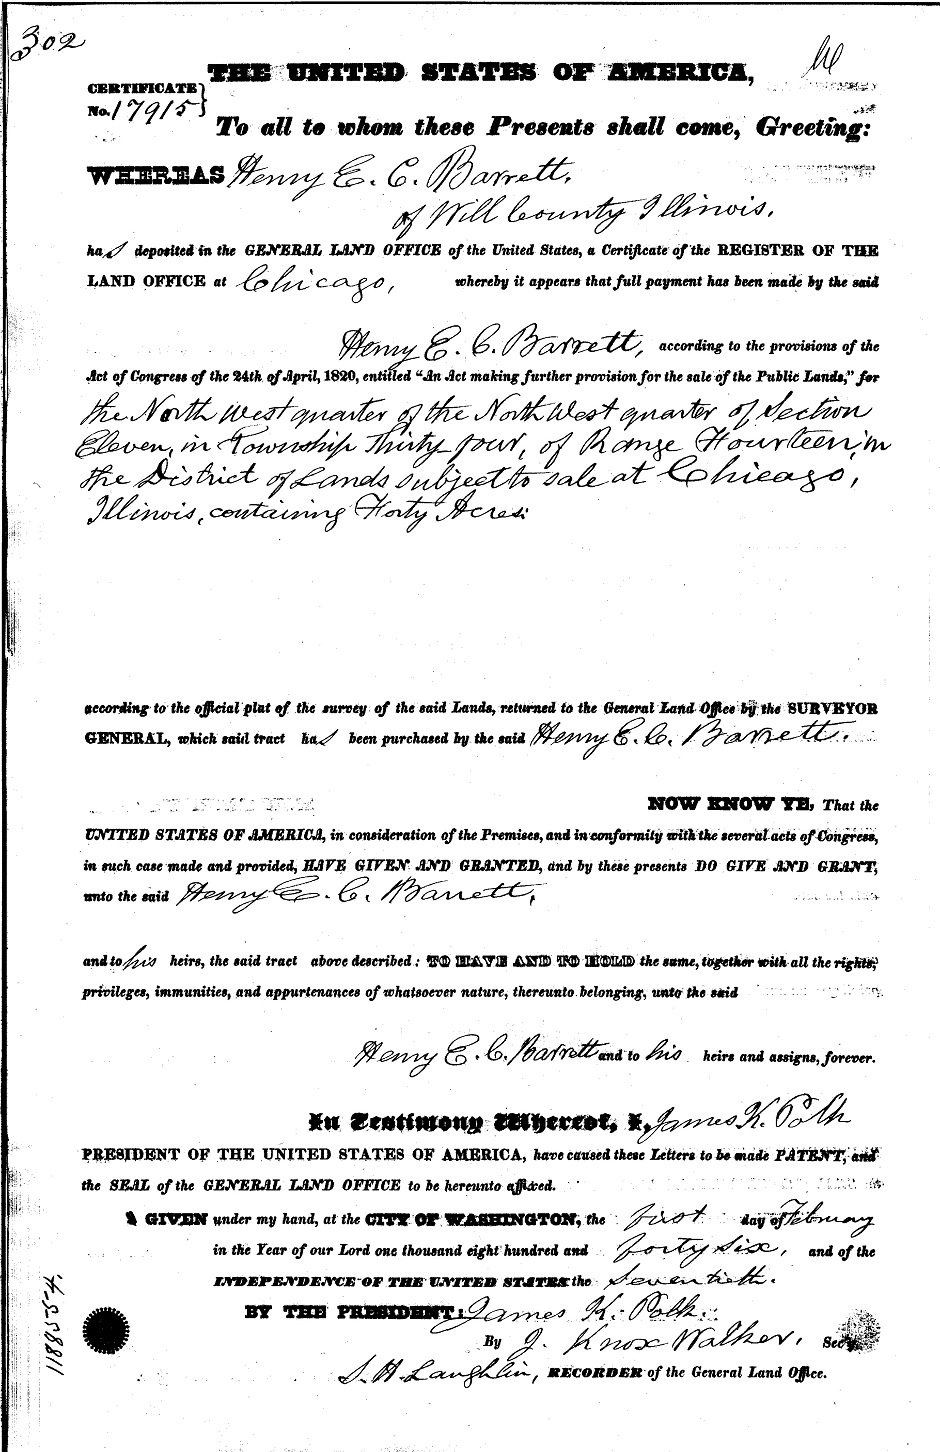 302
THE UNITED STATES OF AMERICA,
CERTIFICATE
No. 17915
To all to whom these Presents shall come, Greeting:
WHEREAS Henry E. C. Barrett,
of Will County Illinois,
has deposited in the GENERAL LAND OFFICE of the United States, a Certificate of the REGISTER OF THE
LAND OFFICE at Chicago, whereby it appears that full payment has been made by the said
Henry E. C. Barrett, according to the provisions of the
Act of Congress of the 24th of April, 1820, entitled "An Act making further provision for the sale of the Public Lands," for
the North West quarter of the North West quarter of Section
Eleven, in Township Thirty four, of Range Fourteen, in
the District of Lands subject to sale at Chicago,
Illinois, containing Forty Acres.
according to the official plat of the survey of the said Lands, returned to the General Land Office by the SURVEYOR
GENERAL, which said tract has been purchased by the said Henry E. C. Barrett.
NOW KNOW YE, That the
UNITED STATES OF AMERICA, in consideration of the Premises, and in conformity with the several acts of Congress,
in such case made and provided, HAVE GIVEN AND GRANTED, and by these presents DO GIVE AND GRANT,
unto the said Henry E. C. Barrett,
and to his heirs, the said tract above described: TO HAVE AND TO HOLD the same, together with all the rights,
privileges, immunities, and appurtenances of whatsoever nature, thereunto belonging, unto the said
Henry E. C. Barrett and to his heirs and assigns, forever.
In Testimony Whereof, I, James K. Polk
PRESIDENT OF THE UNITED STATES OF AMERICA, have caused these Letters to be made PATENT, and
the SEAL of the GENERAL LAND OFFICE to be hereunto affixed.
GIVEN under my hand, at the CITY OF WASHINGTON, the first day of February
in the Year of our Lord one thousand eight hundred and forty six, and of the
INDEPENDENCE OF THE UNITED STATES the Seventieth.
BY THE PRESIDENT: James K. Polk.
By J. Knox Walker, Sec'y.
S. H. Laughlin, RECORDER of the General Land Office.